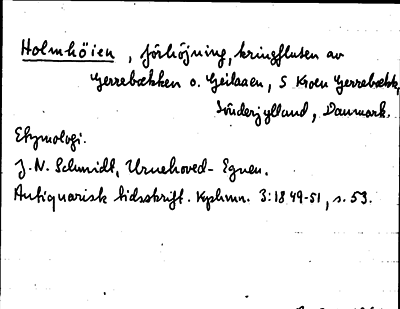 Holmhöien, förhöjning, kringfluten av
Gerrebækken o. Geilaaen, S Kroen Gerrebækk,
Sönderjylland, Danmark.
Etymologi.
J. N. Schmidt, Urnehoved-Egnen.
Antiquarisk tidsskrift. Kphmn. 3:1849-51, s. 53.